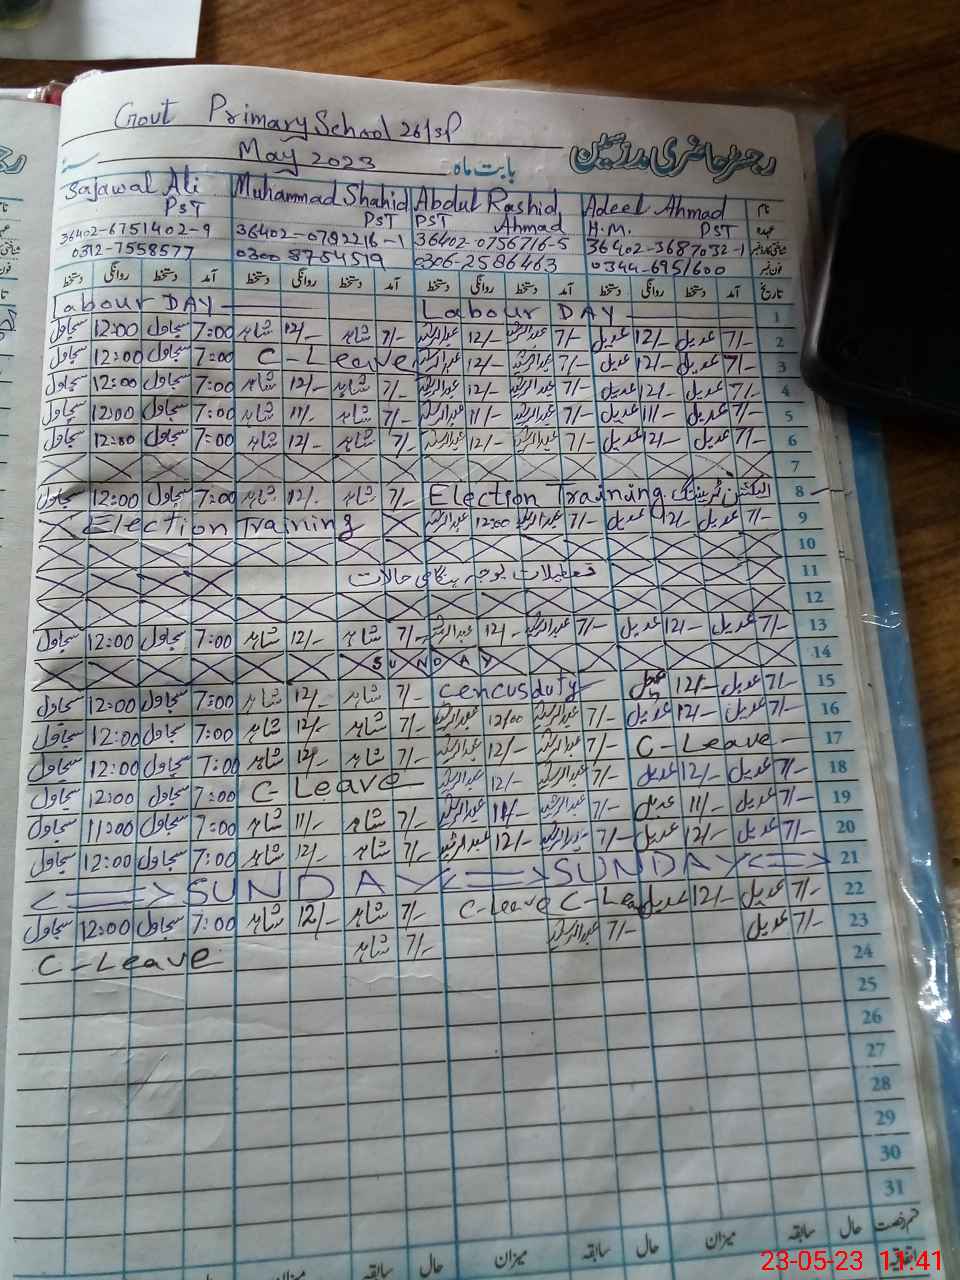 Govt Primary School 26/SP
رجسٹر حاضری مدرسین
May 2023 بابت ماہ
Sajawal Ali Muhammad Shahid Abdul Rashid Adeel Ahmad نام
PST PST PST Ahmad H.M. PST عہدہ
36402-6751402-9 36402-0792216-1 36402-0756716-5 36402-3687032-1
0312-7558577 0300 8754519 0306-2586463 0344-6951600 فون نمبر
دستخط روانگی دستخط آمد دستخط روانگی دستخط آمد دستخط روانگی دستخط آمد دستخط روانگی دستخط آمد تاریخ
Labour DAY Labour DAY 1
سجاول 12:00 سجاول 7:00 شاہد 12/- شاہد 7/- عبدالرشید 12/- عبدالرشید 7/- عدیل 12/- عدیل 7/- 2
سجاول 12:00 سجاول 7:00 C-Leave عبدالرشید 12/- عبدالرشید 7/- عدیل 12/- عدیل 7/- 3
سجاول 12:00 سجاول 7:00 شاہد 12/- شاہد 7/- عبدالرشید 12/- عبدالرشید 7/- عدیل 12/- عدیل 7/- 4
سجاول 12:00 سجاول 7:00 شاہد 11/- شاہد 7/- عبدالرشید 11/- عبدالرشید 7/- عدیل 11/- عدیل 7/- 5
سجاول 12:00 سجاول 7:00 شاہد 12/- شاہد 7/- عبدالرشید 12/- عبدالرشید 7/- عدیل 12/- عدیل 7/- 6
7
سجاول 12:00 سجاول 7:00 شاہد 12/- شاہد 7/- Election Training الیکشن ٹریننگ 8
Election Training عبدالرشید 12:00 عبدالرشید 7/- عدیل 12/- عدیل 7/- 9
10
تعطیلات بوجہ ہنگامی حالات 11
12
سجاول 12:00 سجاول 7:00 شاہد 12/- شاہد 7/- عبدالرشید 12/- عبدالرشید 7/- عدیل 12/- عدیل 7/- 13
SUNDAY 14
سجاول 12:00 سجاول 7:00 شاہد 12/- شاہد 7/- cencus duty عدیل 12/- عدیل 7/- 15
سجاول 12:00 سجاول 7:00 شاہد 12/- شاہد 7/- عبدالرشید 12/00 عبدالرشید 7/- عدیل 12/- عدیل 7/- 16
سجاول 12:00 سجاول 7:00 شاہد 12/- شاہد 7/- عبدالرشید 12/- عبدالرشید 7/- C-Leave 17
سجاول 12:00 سجاول 7:00 C-Leave عبدالرشید 12/- عبدالرشید 7/- عدیل 12/- عدیل 7/- 18
سجاول 11:00 سجاول 7:00 شاہد 11/- شاہد 7/- عبدالرشید 11/- عبدالرشید 7/- عدیل 11/- عدیل 7/- 19
سجاول 12:00 سجاول 7:00 شاہد 12/- شاہد 7/- عبدالرشید 12/- عبدالرشید 7/- عدیل 12/- عدیل 7/- 20
<==> SUNDAY <==> SUNDAY <==> 21
سجاول 12:00 سجاول 7:00 شاہد 12/- شاہد 7/- C-Leave C-Leave عدیل 12/- عدیل 7/- 22
C-Leave شاہد 7/- عبدالرشید 7/- عدیل 7/- 23
24
25
26
27
28
29
30
31
میزان سابقہ حال میزان سابقہ حال میزان سابقہ حال قسم رخصت
اتفاقیہ
23-05-23 11:41